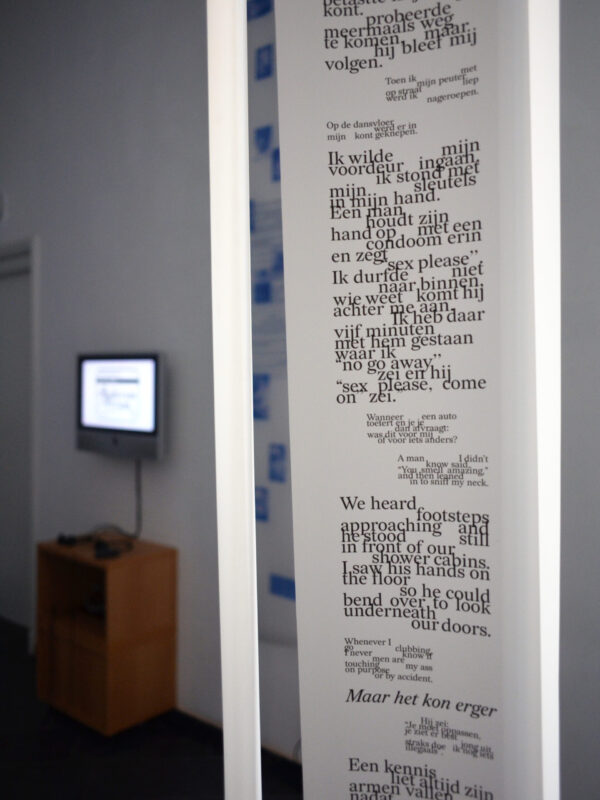 kont.
probeerde
meermaals weg
te komen, maar
hij bleef mij
volgen.
Toen ik met
mijn peuter
op straat liep
werd ik nageroepen.
Op de dansvloer
werd er in
mijn kont geknepen.
Ik wilde mijn
voordeur ingaan,
ik stond met
mijn sleutels
in mijn hand.
Een man
houdt zijn
hand op met een
condoom erin
en zegt
“sex please”.
Ik durfde niet
naar binnen,
wie weet komt hij
achter me aan.
Ik heb daar
vijf minuten
met hem gestaan
waar ik
“no go away”
zei en hij
“sex please, come
on” zei.
Wanneer een auto
toetert en je je
dan afvraagt:
was dit voor mij
of voor iets anders?
A man I didn't
know said,
“You smell amazing,”
and then leaned
in to sniff my neck.
We heard
footsteps
approaching and
he stood still
in front of our
shower cabins.
I saw his hands on
the floor
so he could
bend over to look
underneath
our doors.
Whenever I
go clubbing,
I never know if
men are
touching my ass
on purpose
or by accident.
Maar het kon erger
Hij zei:
“Je moet oppassen,
je ziet er best
jong uit,
straks doe ik nog iets
illegaals”.
Een kennis
liet altijd zijn
armen vallen
nadat